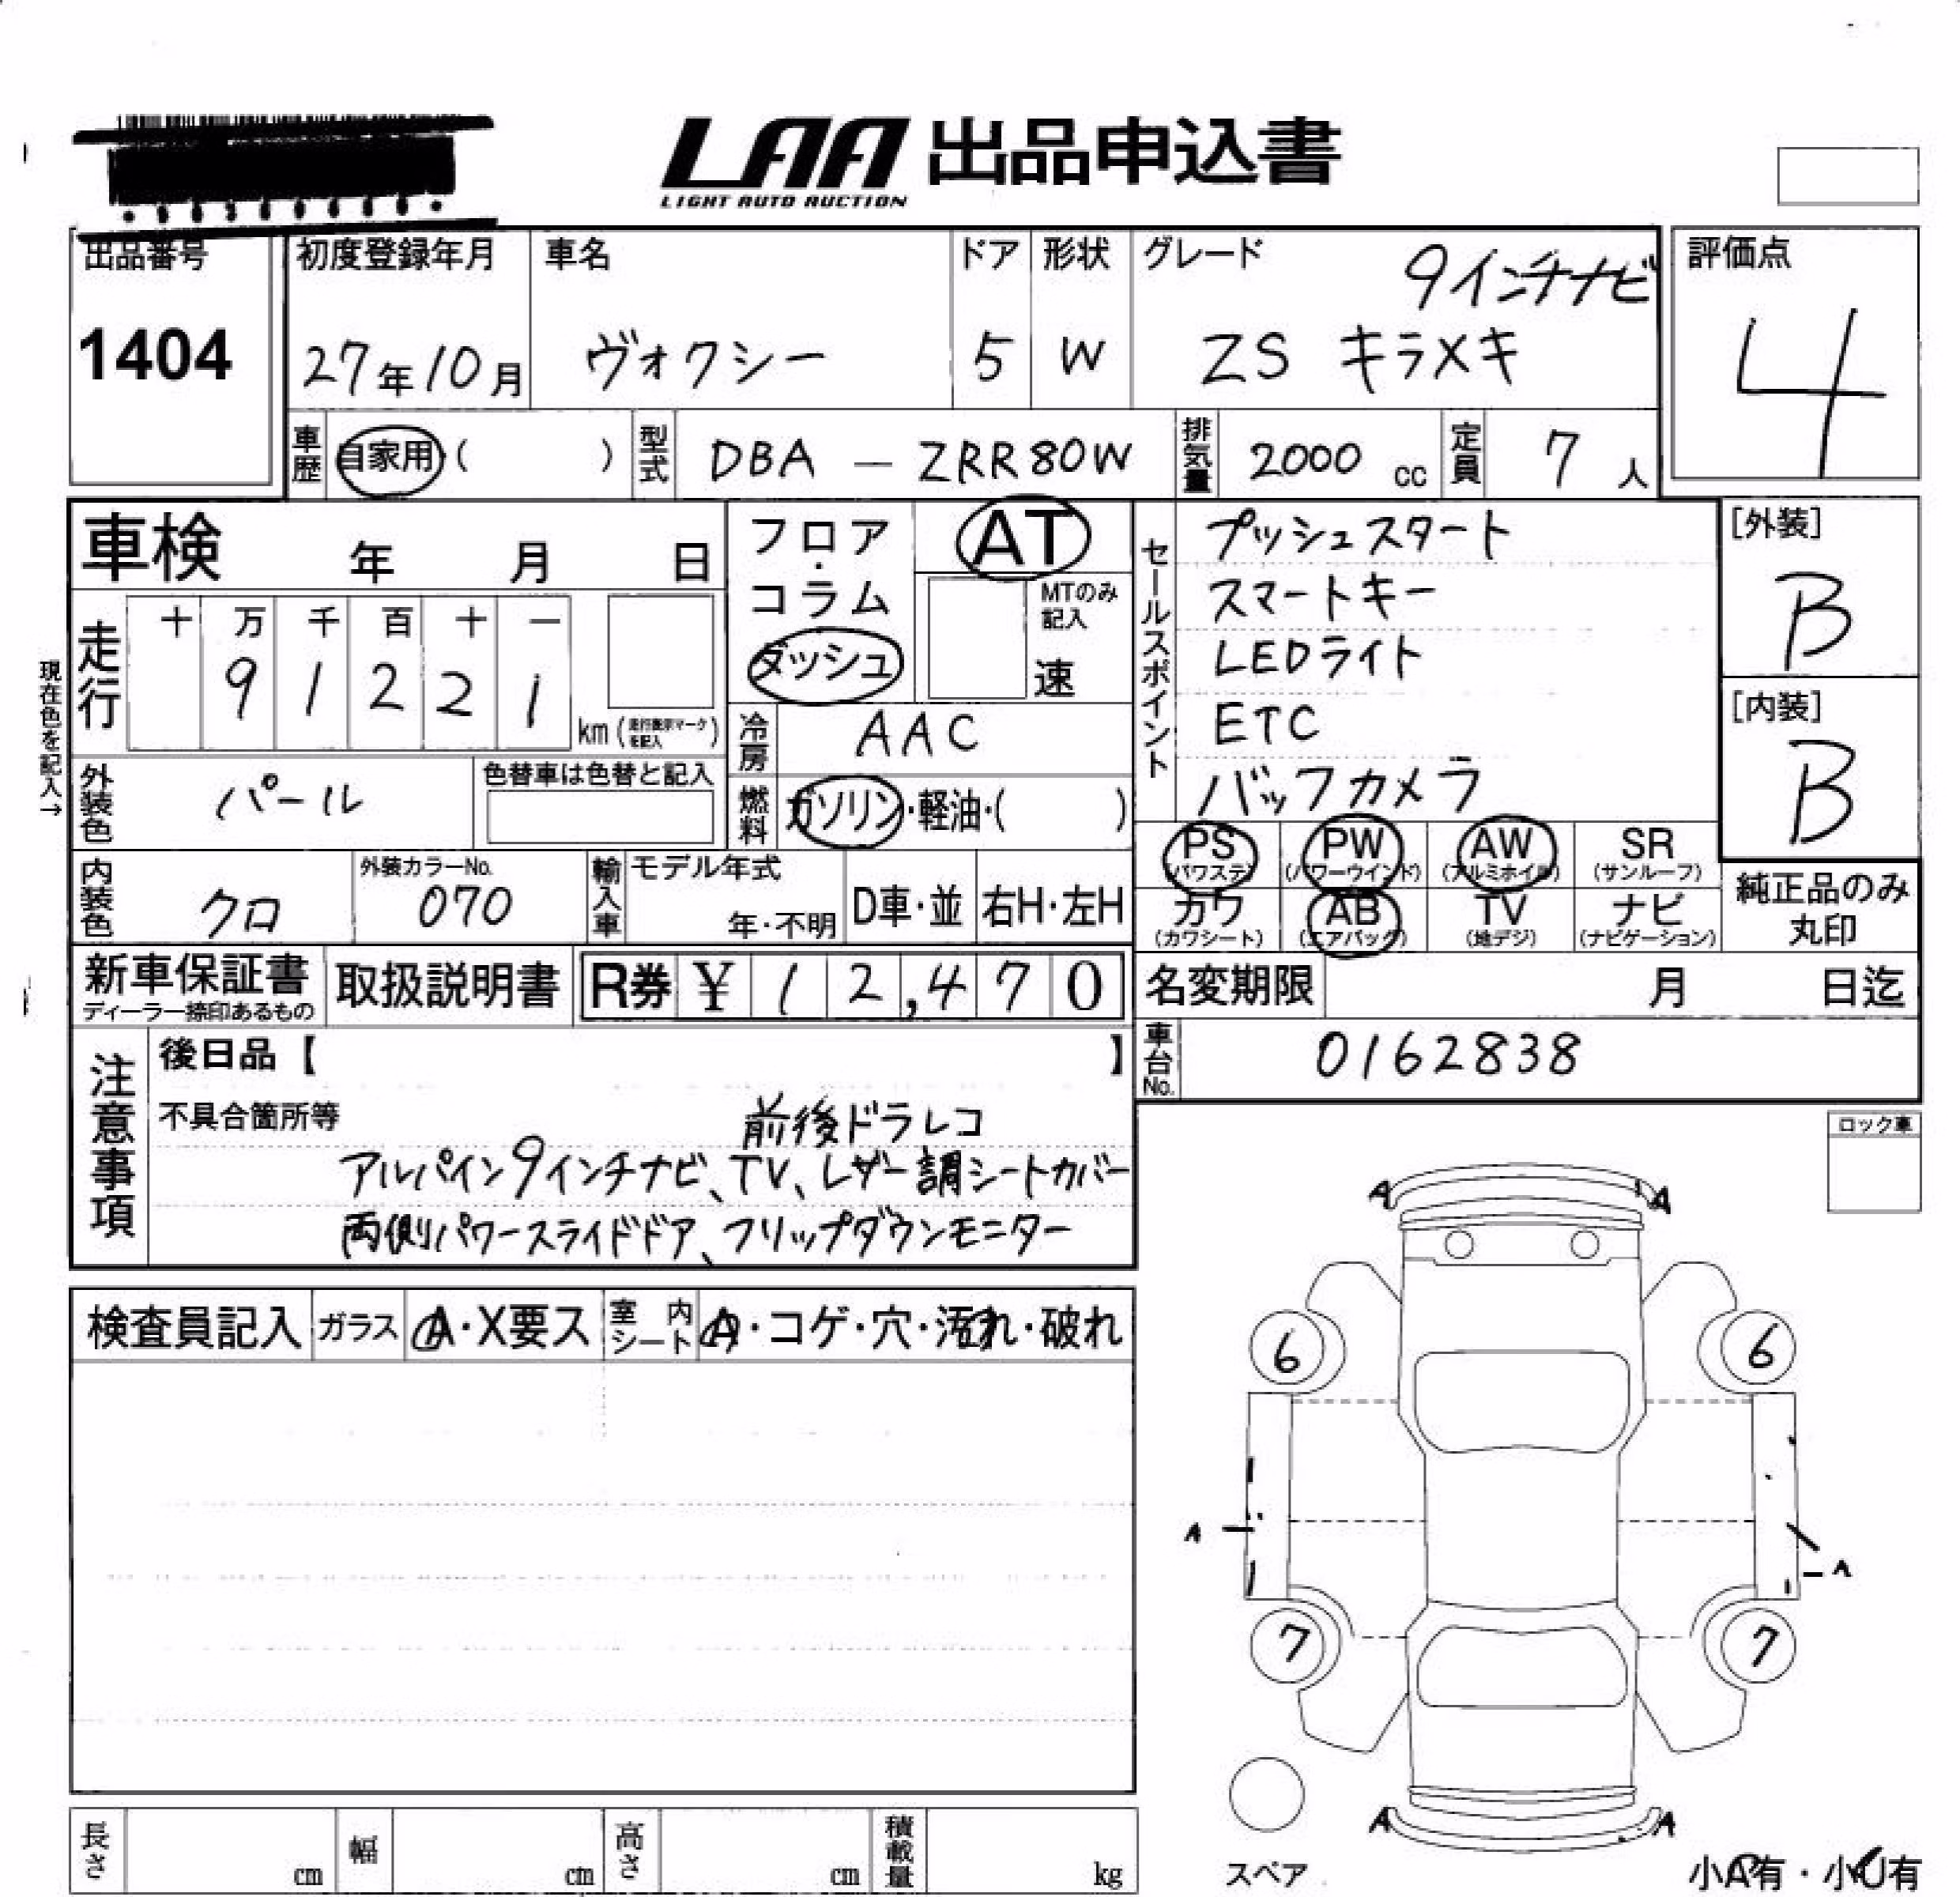 LAA 出品申込書
LIGHT AUTO AUCTION
出品番号 初度登録年月 車名 ドア 形状 グレード 9インチナビ 評価点
1404 27年10月 ヴォクシー 5 W ZS キラメキ 4
車歴 自家用 ( ) 型式 DBA - ZRR80W 排気量 2000 cc 定員 7 人
車検 年 月 日
フロア・コラム
ダッシュ
AT
MTのみ記入
速
現在色を記入→
走行
十 万 千 百 十 一
9 1 2 2 1
km (走行表示マークを記入)
冷房 AAC
外装色 パール 色替車は色替と記入
燃料 ガソリン・軽油・( )
内装色 クロ 外装カラーNo. 070
輸入車 モデル年式 年・不明 D車・並 右H・左H
セールスポイント
プッシュスタート
スマートキー
LEDライト
ETC
バックカメラ
[外装]
B
[内装]
B
PS PW AW SR
(パワステ) (パワーウインド) (アルミホイル) (サンルーフ)
カワ AB TV ナビ
(カワシート) (エアバッグ) (地デジ) (ナビゲーション)
純正品のみ
丸印
新車保証書 取扱説明書 R券 ¥12,470
ディーラー捺印あるもの
名変期限 月 日迄
車台No. 0162838
注意事項
後日品【 】
不具合箇所等 前後ドラレコ
アルパイン9インチナビ、TV、レザー調シートカバー
両側パワースライドドア、フリップダウンモニター
ロック車
検査員記入 ガラス A・X要ス 室内シート A・コゲ・穴・汚れ・破れ
A A
6 6
A A
7 7
A A
スペア
小A有・小U有
長さ cm 幅 cm 高さ cm 積載量 kg